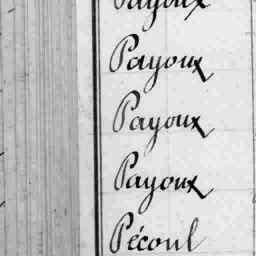 Payoux
Payoux
Payoux
Payoux
Pécoul